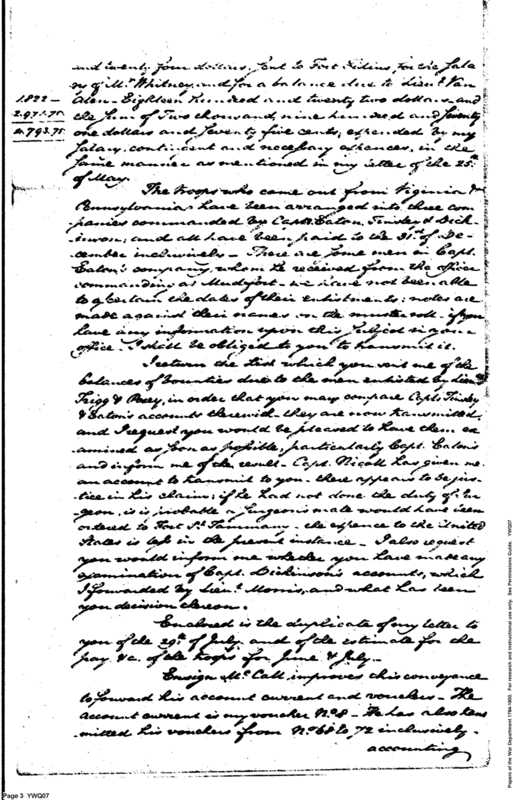 and twenty four dollars, sent to Fort Fidius, for the sala
ry of Mr. Whitney and for a balance due to Lieut. Van
1.822 —
alen - Eighteen hundred and twenty two dollars - and
2.971.75
the sum of Two thousand, nine hundred and seventy
4.793.75
one dollars and seventy five cents; expended by my
salary, contingent and necessary expences, in the
same manner as mentioned in my letter of the 25th
of May.
The troops who came out from Virginia &
Pennsylvania have been arranged into three com
panies commanded by Capts. Eaton, Tinsley & Dick
inson; and all have been paid to the 31st of De-
cember inclusively - There are some men in Capt.
Eaton's company, whom he received from the officer
commanding at Mudfort - we have not been able
to ascertain the dates of their enlistments; notes are
made against their names on the muster roll - if you
have any information upon this subject in your
office - I shall be obliged to you to transmit it.
I return the List which you sent me of the
balances of bounties due to the men enlisted by Lieuts.
Trigg & Posey, in order that you may compare Capts. Tinsley
& Eaton's accounts therewith - they are now transmitted,
and I request you would be pleased to have them ex
amined as soon as possible, particularly Capt. Eaton's
and inform me of the result - Capt. Nicoll has given me
an account to transmit to you - there appears to be jus-
tice in his claim; if he had not done the duty of Sur
geon, it is probable a surgeon's mate would have been
ordered to Fort St. Tammany - the expence to the United
States is less in the present instance - I also request
you would inform me whether you have made any
examination of Capt. Dickinson's accounts, which
I forwarded by Lieut. Morris, and what has been
your decision thereon.
Enclosed is the duplicate of my letter to
you of the 29th of July and of the estimate for the
pay &c. of the troops for June & July -
Ensign McCall improves this conveyance
to forward his account current and vouchers - The
account current is my voucher No. 8 - He has also trans
mitted his vouchers from No. 68 to 72 inclusively.
accounting
Page 3 YWQ07
Papers of the War Department 1784-1800. For research and instructional use only. See Permissions Guide. YWQ07